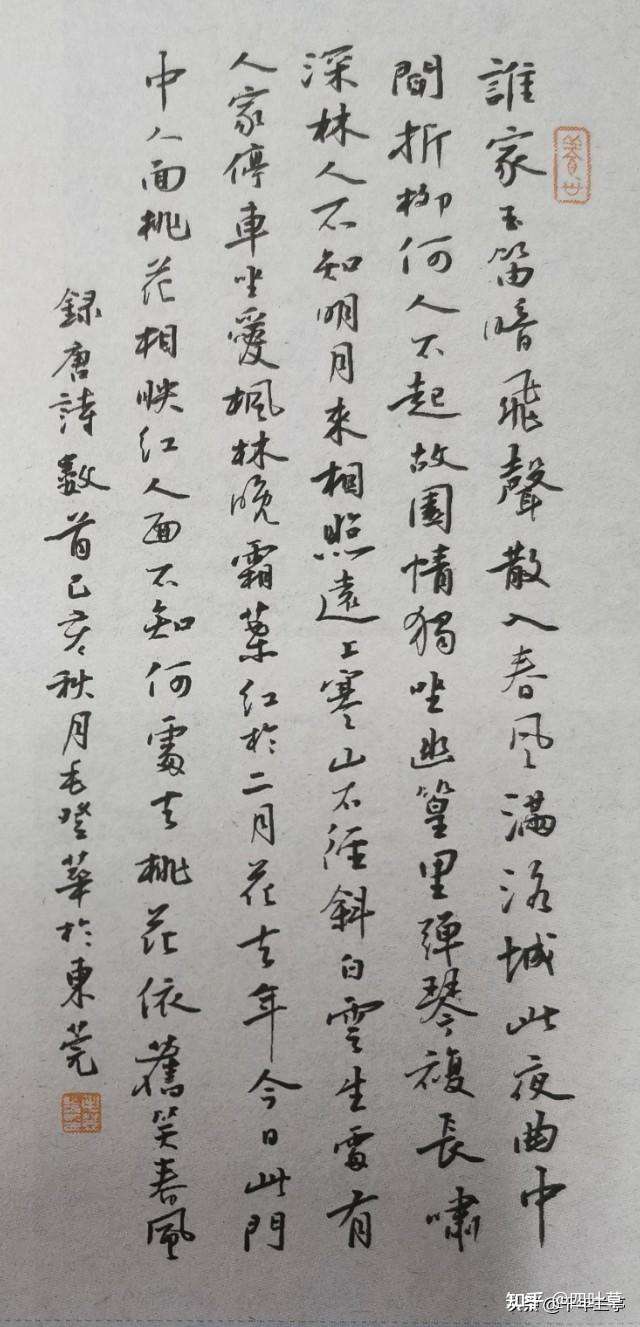 誰家玉笛暗飛聲散入春风滿洛城此夜曲中
聞折柳何人不起故園情獨坐幽篁里彈琴複長嘯
深林人不知明月來相照遠上寒山石徑斜白雲生處有
人家停車坐愛楓林晚霜葉红於二月花去年今日此門
中人面桃花相映红人面不知何處去桃花依舊笑春風
録唐詩數首己亥秋月毛登華於東莞
知乎 @四叶草
头条 @千年兰亭